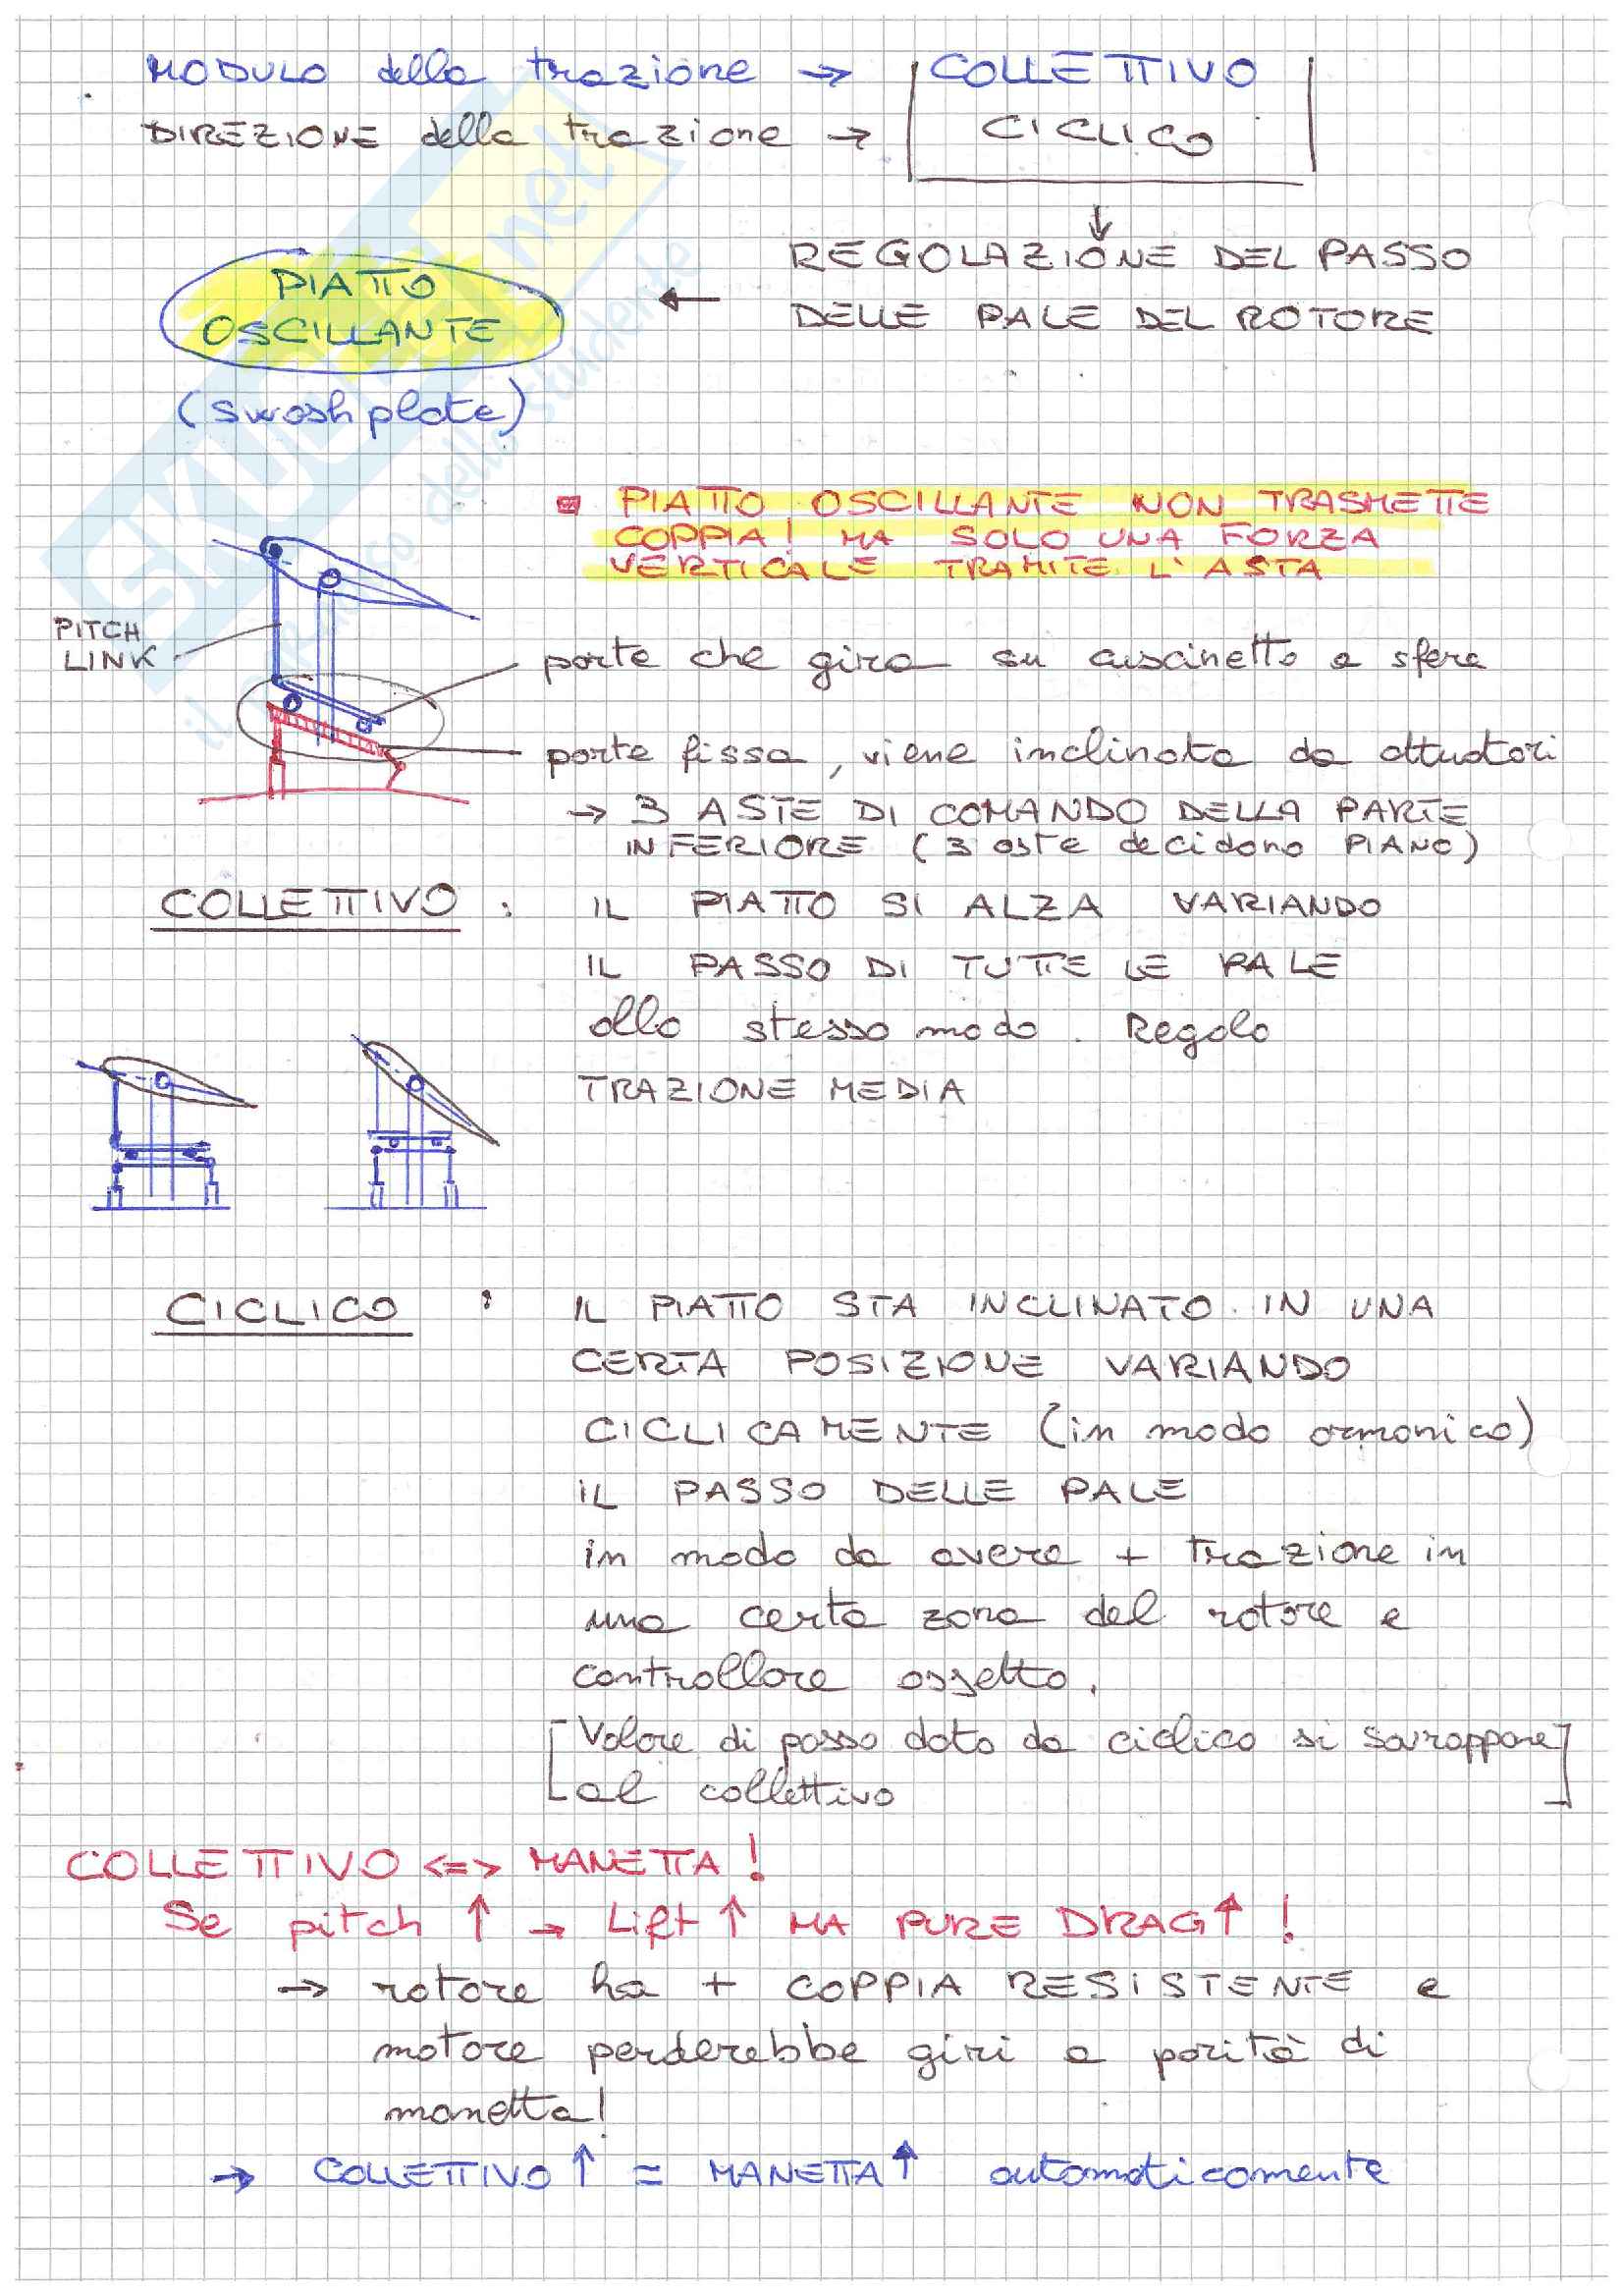 MODULO della trazione → COLLETTIVO
DIREZIONE della trazione → CICLICO
↓
REGOLAZIONE DEL PASSO
DELLE PALE DEL ROTORE
←
PIATTO
OSCILLANTE
(swashplate)
PIATTO OSCILLANTE NON TRASMETTE
COPPIA! MA SOLO UNA FORZA
VERTICALE TRAMITE L'ASTA
PITCH
LINK
parte che gira su cuscinetto a sfera
parte fissa, viene inclinata da attuatori
→ 3 ASTE DI COMANDO DELLA PARTE
INFERIORE (3 aste decidono PIANO)
COLLETTIVO : IL PIATTO SI ALZA VARIANDO
IL PASSO DI TUTTE LE PALE
allo stesso modo. Regolo
TRAZIONE MEDIA
CICLICO : IL PIATTO STA INCLINATO IN UNA
CERTA POSIZIONE VARIANDO
CICLICAMENTE (in modo armonico)
IL PASSO DELLE PALE
in modo da avere + trazione in
una certa zona del rotore e
controllare assetto.
[Valore di passo dato da ciclico si sovrappone
al collettivo]
COLLETTIVO <=> MANETTA!
Se pitch ↑ → Lift ↑ MA PURE DRAG ↑ !
→ rotore ha + COPPIA RESISTENTE e
motore perderebbe giri a parità di
manetta!
→ COLLETTIVO ↑ = MANETTA ↑ automaticamente
SKUOLA.net
il paradiso dello studente